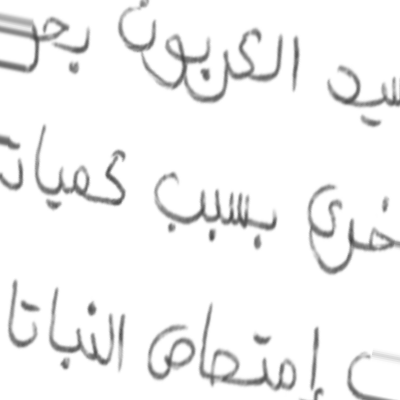 سيد الكربون بحر
خرى بسبب كميات
إمتصاص النباتا